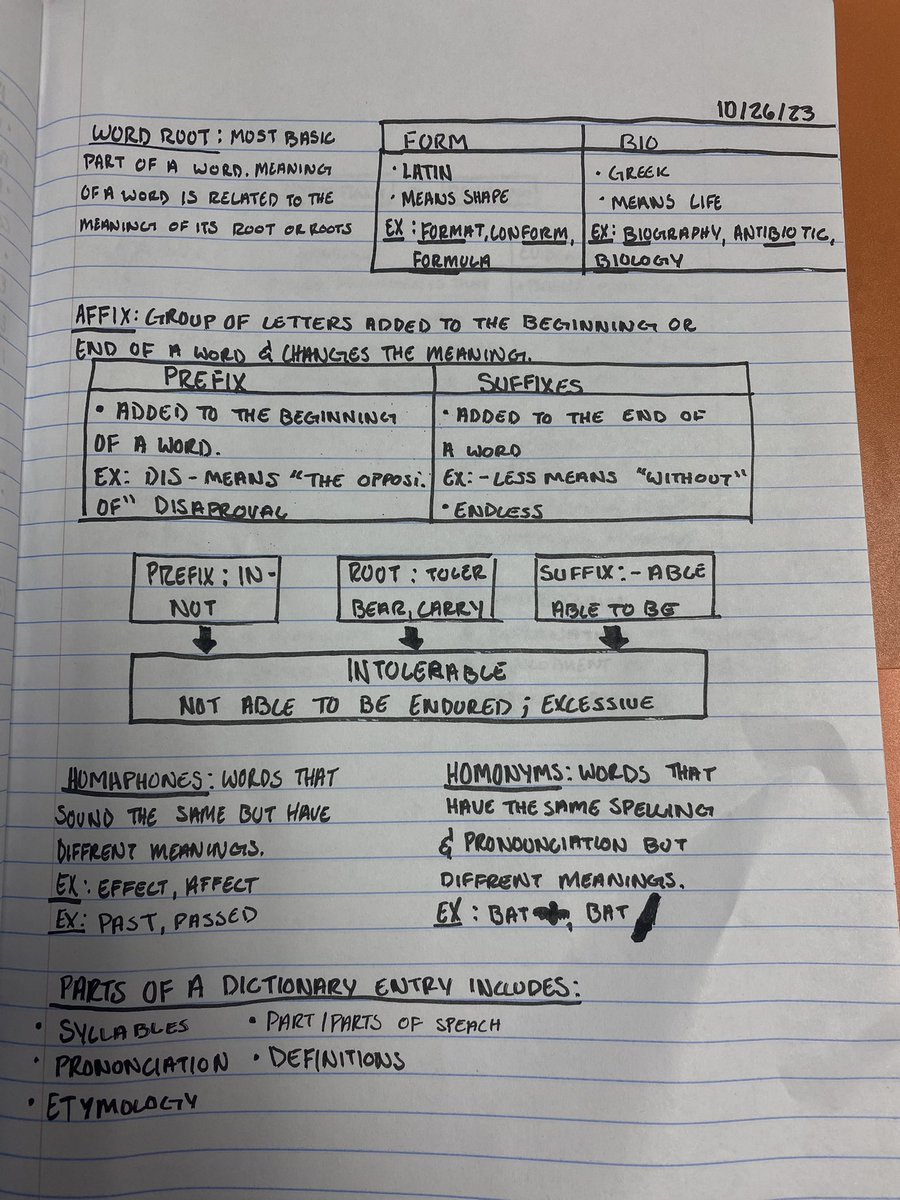 10/26/23
WORD ROOT: MOST BASIC
PART OF A WORD. MEANING
OF A WORD IS RELATED TO THE
MEANING OF ITS ROOT OR ROOTS
FORM
• LATIN
• MEANS SHAPE
EX: FORMAT, CONFORM,
FORMULA
BIO
• GREEK
• MEANS LIFE
EX: BIOGRAPHY, ANTIBIOTIC,
BIOLOGY
AFFIX: GROUP OF LETTERS ADDED TO THE BEGINNING OR
END OF A WORD & CHANGES THE MEANING.
PREFIX
• ADDED TO THE BEGINNING
OF A WORD.
EX: DIS - MEANS "THE OPPOSI.
OF" DISAPROVAL
SUFFIXES
• ADDED TO THE END OF
A WORD
EX: -LESS MEANS "WITHOUT"
• ENDLESS
PREFIX: IN-
NOT
ROOT: TOLER
BEAR, CARRY
SUFFIX: -ABLE
ABLE TO BE
INTOLERABLE
NOT ABLE TO BE ENDURED; EXCESSIVE
HOMAPHONES: WORDS THAT
SOUND THE SAME BUT HAVE
DIFFRENT MEANINGS.
EX: EFFECT, AFFECT
EX: PAST, PASSED
HOMONYMS: WORDS THAT
HAVE THE SAME SPELLING
& PRONOUNCIATION BUT
DIFFRENT MEANINGS.
EX: BAT, BAT
PARTS OF A DICTIONARY ENTRY INCLUDES:
• SYLLABLES
• PRONONCIATION
• ETYMOLOGY
• PART/PARTS OF SPEACH
• DEFINITIONS